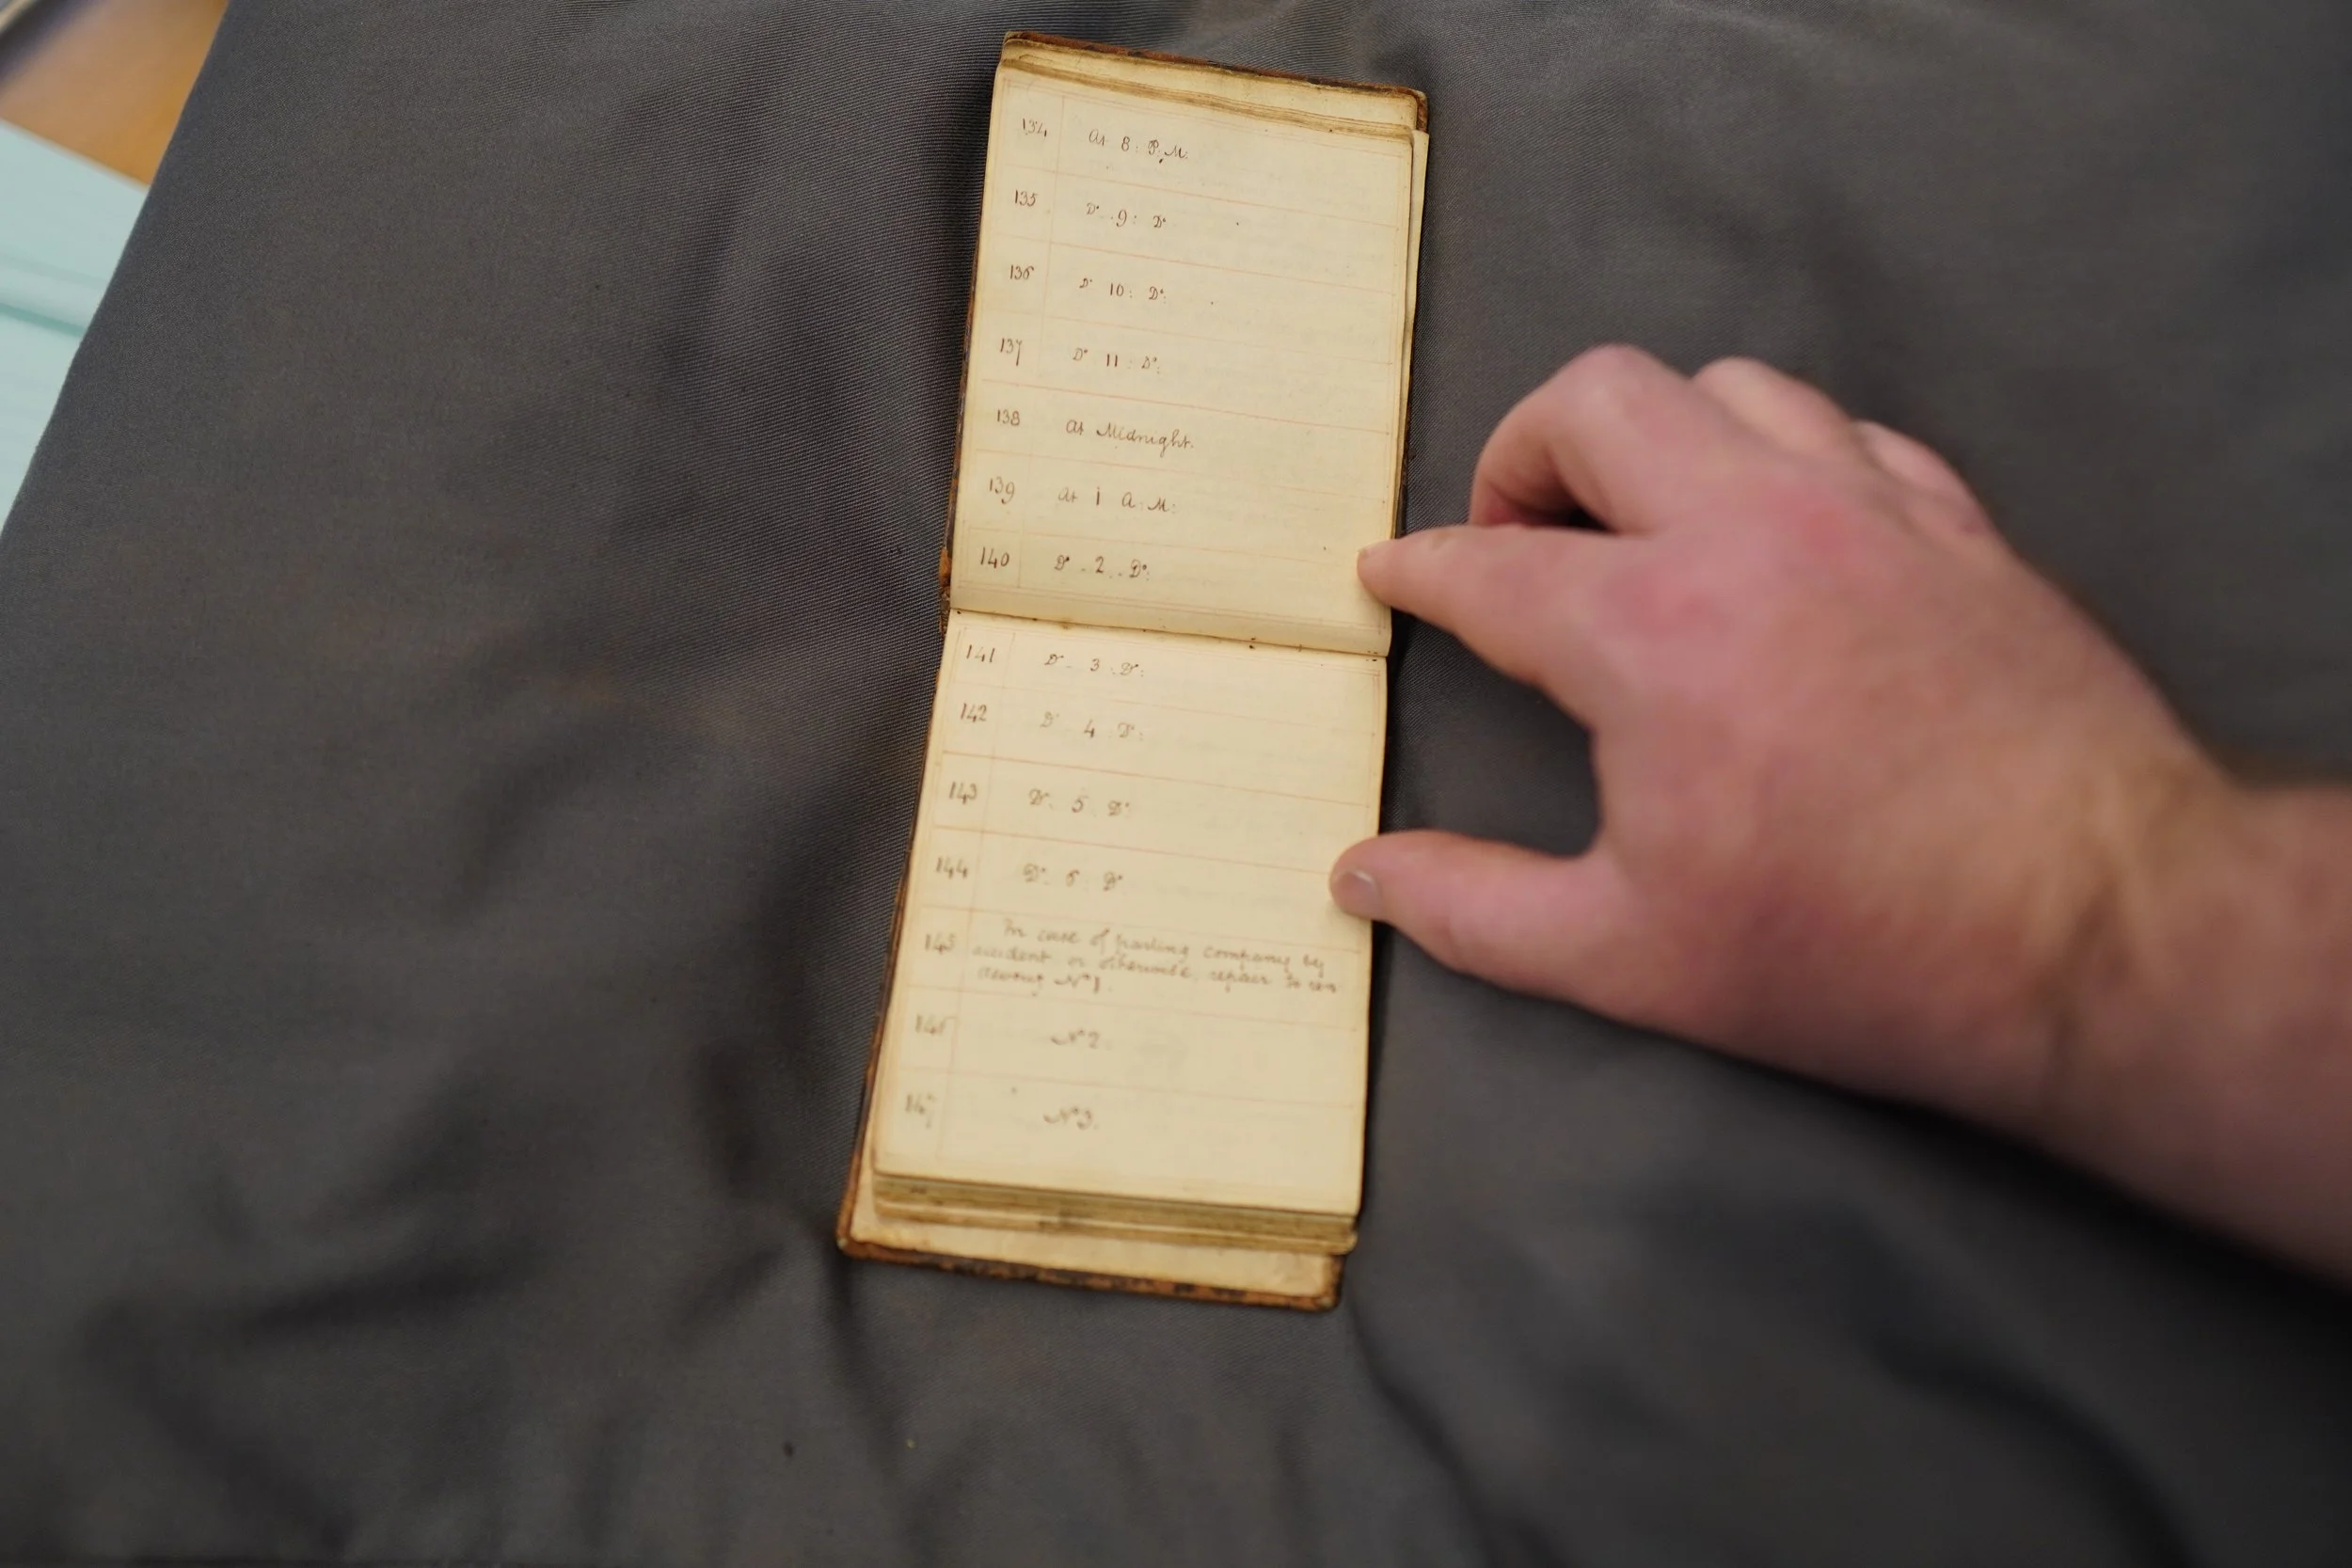 134 At 8: P.M.
135 Do 9: Do
136 Do 10: Do:
137 Do 11: Do:
138 At Midnight.
139 At 1 A.M:
140 Do - 2 - Do:
141 Do - 3 - Do:
142 Do 4 Do:
143 Do 5 Do
144 Do 6 Do
145 In case of parting company by
accident or otherwise, repair to ren
dezvous No 1.
146 No 2.
147 No 3.